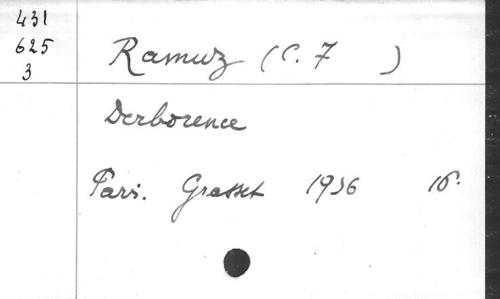 431
625
3
Ramuz (C. F )
Derborence
Pari. Grasset 1936 16.